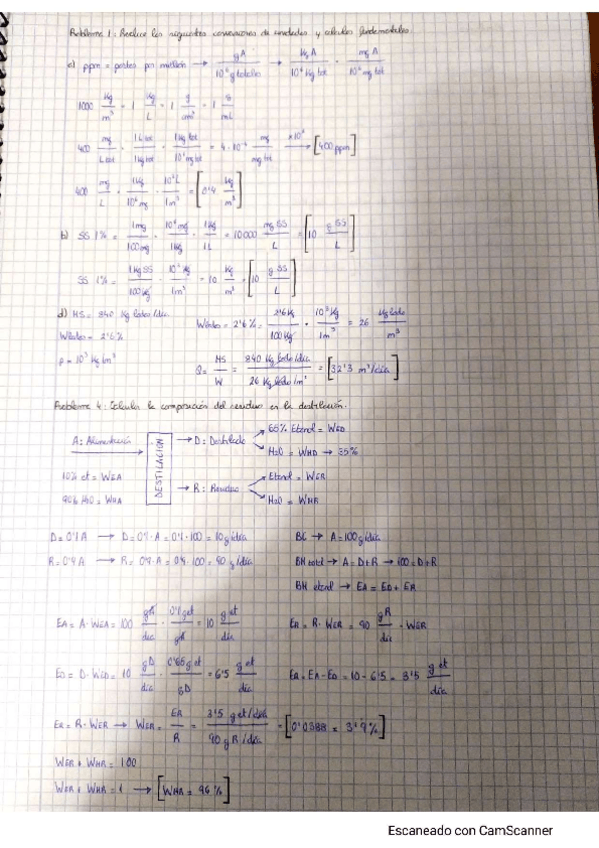 Problema 1: Realice las siguientes conversiones de unidades y cálculos fundamentales.
a) ppm = partes por millón → gA / 10⁶ g totales → KgA / 10⁶ Kg tot · mg A / 10⁶ mg tot
1000 Kg/m³ = 1 Kg/L = 1 g/cm³ = 1 g/mL
400 mg/L tot · 1 L tot/1 kg tot · 1 kg tot/10⁶ mg tot = 4·10⁻⁴ mg/mg tot ×10⁶ → [400 ppm]
400 mg/L · 1 Kg/10⁶ mg · 10³ L/1 m³ = [0'4 kg/m³]
b) SS 1% = 1 mg/100 mg · 10⁶ mg/1 Kg · 1 Kg/1 L = 10000 mg SS/L = [10 g SS/L]
SS 1% = 1 Kg SS/100 Kg · 10³ Kg/1 m³ = 10 Kg/m³ = [10 g SS/L]
d) MS = 840 Kg lodo/día
Wlodo = 2'6% = 2'6 Kg/100 Kg · 10³ Kg/1 m³ = 26 Kg lodo/m³
Wlodo = 2'6%
ρ = 10³ Kg/m³
Q = MS/W = 840 Kg lodo/día / 26 Kg lodo/m³ = [32'3 m³/día]
Problema 4: Calcula la composición del residuo en la destilación.
A: Alimentación
DESTILACIÓN
→ D: Destilado
65% Etanol = WED
H2O = WHD → 35%
10% et = WEA
90% H2O = WHA
→ R: Residuo
Etanol = WER
H2O = WHR
D = 0'1 A → D = 0'1 · A = 0'1 · 100 = 10 g/día
BC → A = 100 g/día
R = 0'9 A → R = 0'9 · A = 0'9 · 100 = 90 g/día
BM total → A = D + R → 100 = D + R
BM etanol → EA = ED + ER
EA = A · WEA = 100 gA/día · 0'1 g et/gA = 10 g et/día
ER = R · WER = 90 gR/día · WER
ED = D · WED = 10 gD/día · 0'65 g et/gD = 6'5 g et/día
ER = EA - ED = 10 - 6'5 = 3'5 g et/día
ER = R · WER → WER = ER/R = 3'5 g et/día / 90 g R/día = [0'0388 = 3'9%]
WER + WHR = 100
WER + WHR = 1 → [WHR = 96%]
Escaneado con CamScanner